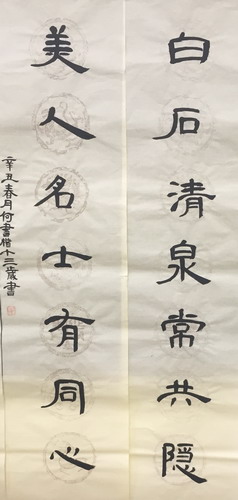 白石清泉常共隐
美人名士有同心
辛丑春月何書楷十三歲書